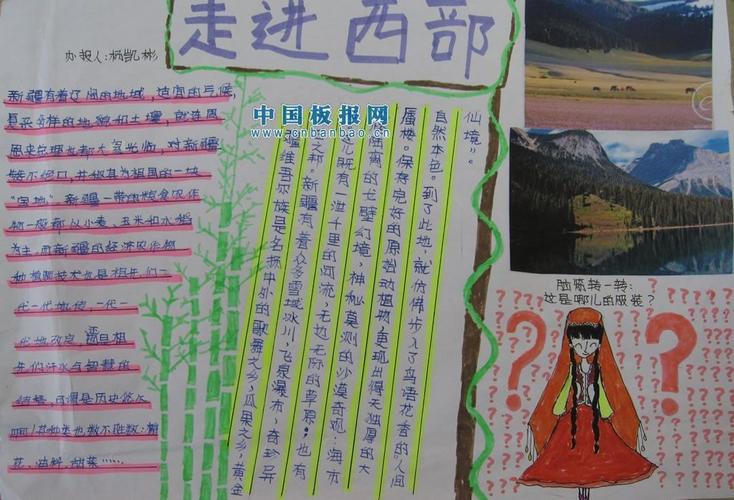 走进西部
办报人:杨凯彬
新疆有着辽阔的地域,适宜的气候,
复杂多样的地貌和土壤,就连周
恩来总理也都大驾光临,对新疆
赞不绝口,并称其为祖国的一块
"宝地"。新疆一带的粮食农作
物一般都以小麦、玉米和水稻
为主,而新疆的经济农作物
种植期技术也是祖先们一
代一代地传,一代一
代地改良,
先们汗水与智慧的
结晶,可谓是历史悠久
啊!其种类也数不胜数:棉
花、油籽、甜菜……
中国板报网
www.cnbanbao.cn
仙境"。
自然本色。到了此地,就仿佛步入了鸟语花香的"人间
蜃楼。保存完好的原始动植物,更现出得天独厚的大
陆离的戈壁幻境,神秘莫测的沙漠奇观:海市
儿既有一泄千里的河流,无边无际的草原;也有
之邦。新疆有着众多雪域冰川,飞泉瀑布,奇珍异
疆维吾尔族是名扬中外的歌舞之乡,瓜果之乡,黄金
脑筋转一转:
这是哪儿的服装?